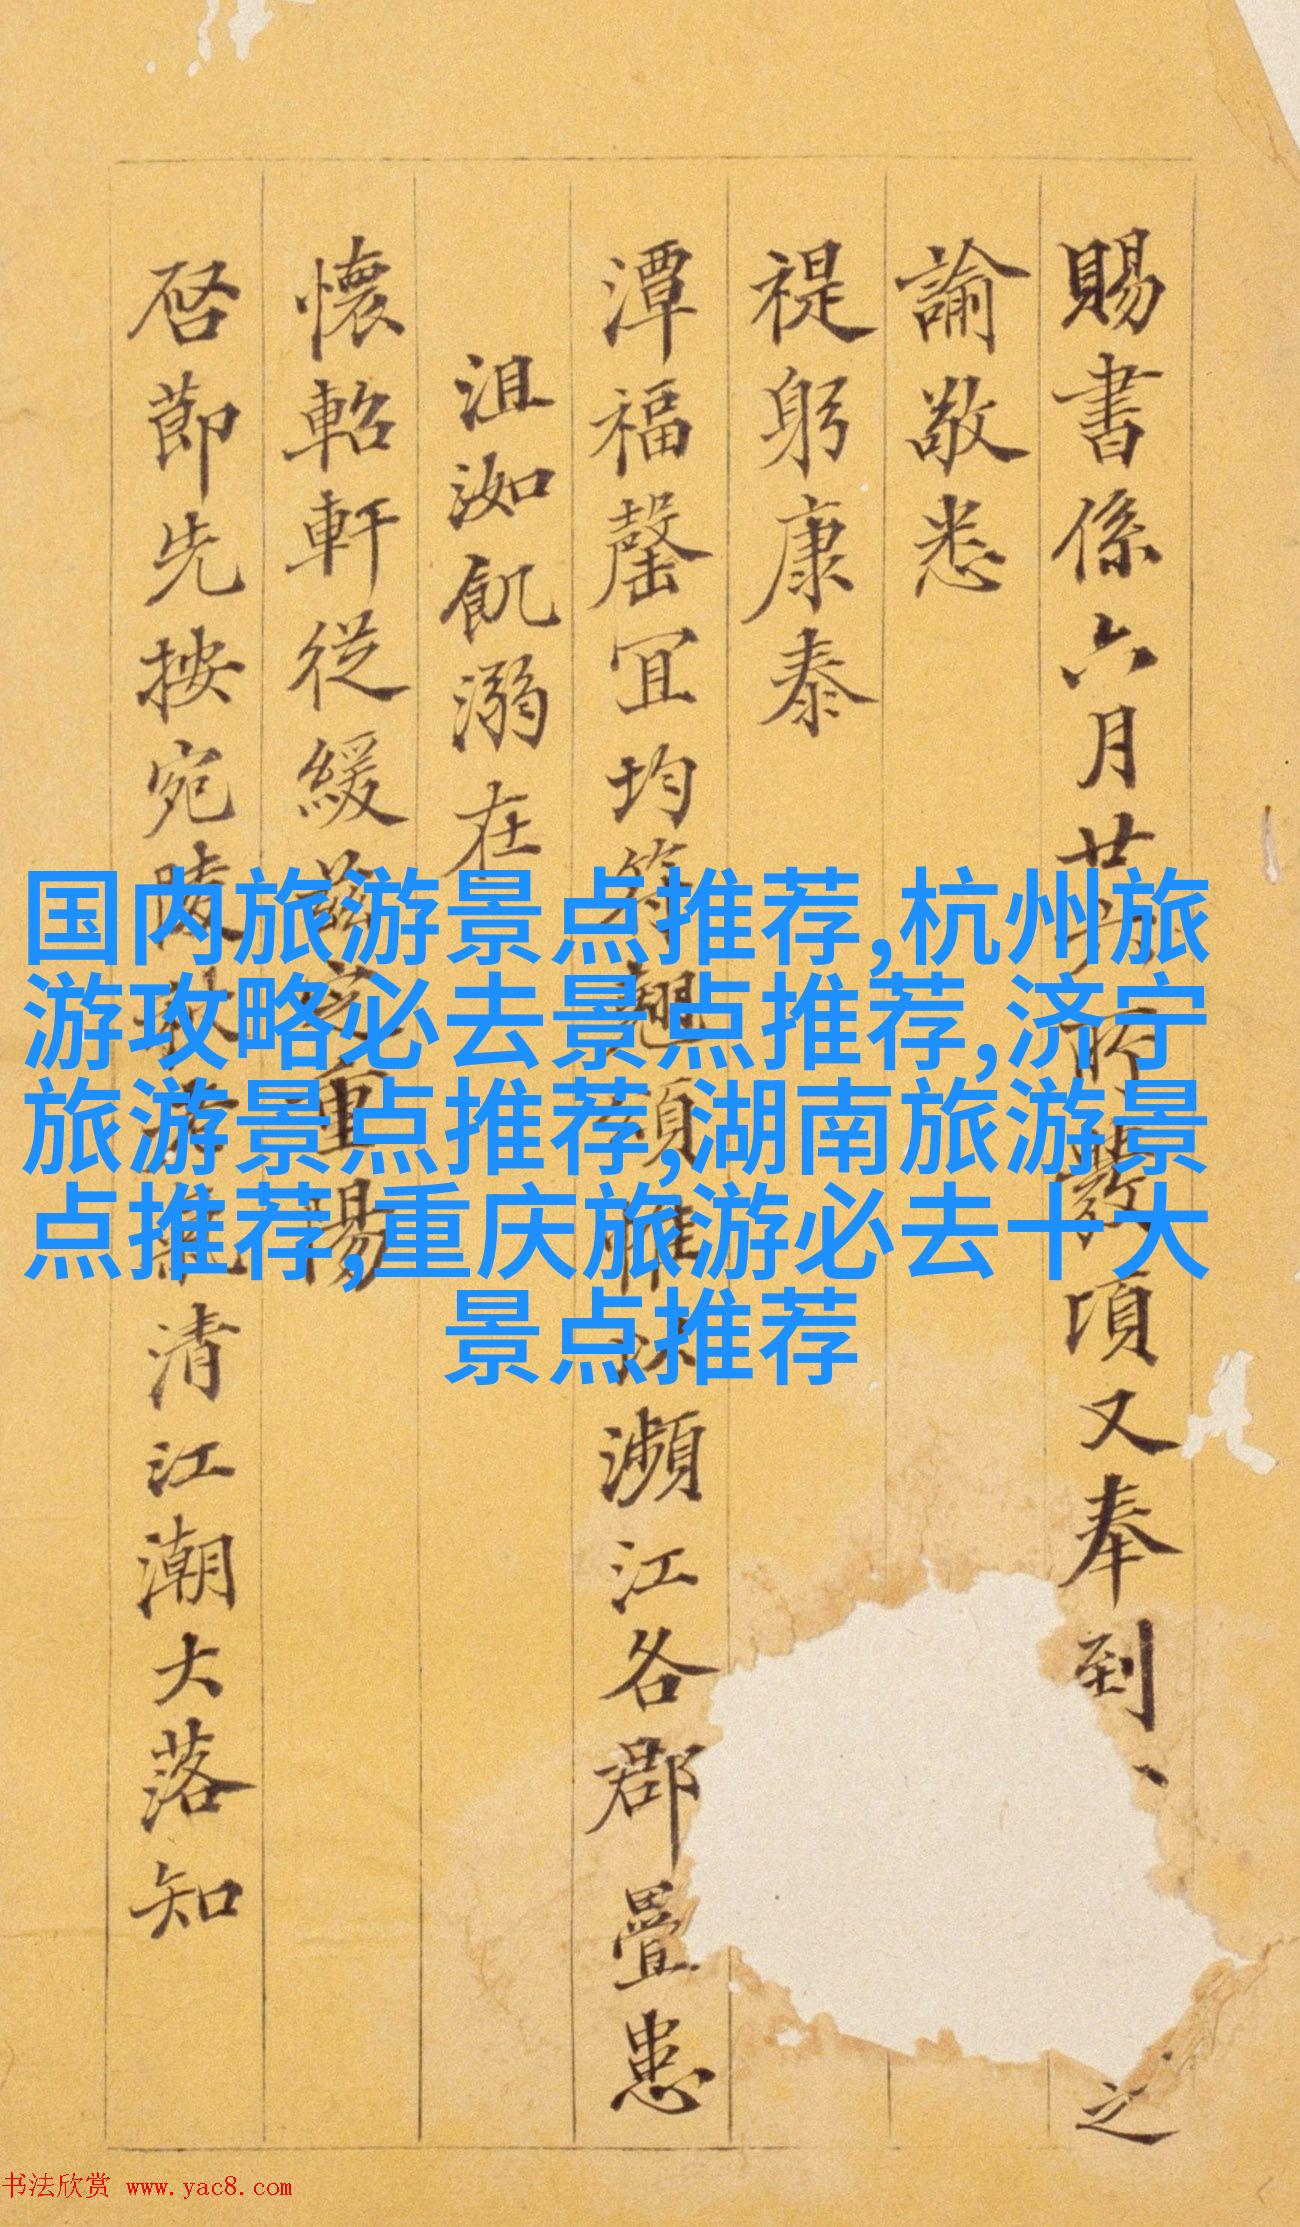 賜書係六月廿六所發項又奉到
之
諭敬悉
禔躬康泰
潭福罄宜均符翹頌惟
瀕江各郡疊患
沮洳飢溺在
懷軺軒從緩
重陽
啓節先按宛陵
清江潮大落知
国内旅游景点推荐,杭州旅
游攻略必去景点推荐,济宁
旅游景点推荐,湖南旅游景
点推荐,重庆旅游必去十大
景点推荐
书法欣赏 www.yac8.com